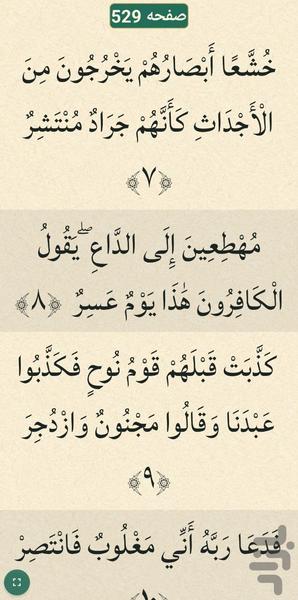 صفحه 529
خُشَّعًا أَبْصَارُهُمْ يَخْرُجُونَ مِنَ
الْأَجْدَاثِ كَأَنَّهُمْ جَرَادٌ مُنْتَشِرٌ
﴿٧﴾
مُهْطِعِينَ إِلَى الدَّاعِ ۖ يَقُولُ
الْكَافِرُونَ هَٰذَا يَوْمٌ عَسِرٌ ﴿٨﴾
كَذَّبَتْ قَبْلَهُمْ قَوْمُ نُوحٍ فَكَذَّبُوا
عَبْدَنَا وَقَالُوا مَجْنُونٌ وَازْدُجِرَ
﴿٩﴾
فَدَعَا رَبَّهُ أَنِّي مَغْلُوبٌ فَانْتَصِرْ